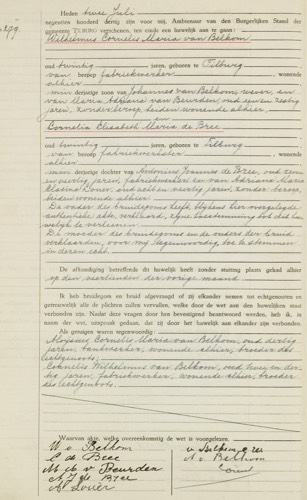 Heden twee Juli
negentien honderd dertig zijn voor mij, Ambtenaar van den Burgerlijken Stand der
gemeente TILBURG verschenen, ten einde een huwelijk aan te gaan:
Wilhelmus Cornelis Maria van Belkom
oud twintig jaren, geboren te Tilburg
van beroep fabriekwerker, wonende
alhier
minderjarige zoon van Johannes van Belkom, wever, en
van Maria Adriana van Beurden, oud een en zestig
jaren, zonder beroep, beiden wonende alhier
en
Cornelia Elisabeth Maria de Bree
oud twintig jaren, geboren te Tilburg
van beroep fabriekwerkster, wonende
alhier
minderjarige dochter van Antonius Joannes de Bree, oud
en veertig jaren, fabriekwerker en van Adriana Maria
oud acht en veertig jaren, zonder beroep,
beiden wonende alhier
De vader des bruidegoms heeft, blijkens hier overgelegde
authentieke akte, verklaard, zijne toestemming tot dit hu-
welijk te verleenen.
De moeder des bruidegoms en de ouders der bruid
verklaarden, voor mij tegenwoordig, toe te stemmen
in deren echt.
De afkondiging betreffende dit huwelijk heeft zonder stuiting plaats gehad alhier
op den een twintigsten der vorige maand
Ik heb bruidegom en bruid afgevraagd of zij elkander nemen tot echtgenooten en
getrouwelijk alle de plichten zullen vervullen, welke door de wet aan den huwelijken staat
verbonden zijn. Nadat deze vragen door hen bevestigend beantwoord werden, heb ik, in
naam der wet, uitspraak gedaan, dat zij door het huwelijk aan elkander zijn verbonden.
Als getuigen waren tegenwoordig:
Aloysius Cornelis Maria van Belkom, oud dertig
jaren, bankwerker, wonende alhier, broeder des
echtgenoots
Cornelis Wilhelmus van Belkom, oud twee en der-
tig jaren, fabriekwerker, wonende alhier, broeder
des echtgenoots
Waarvan akte, welke overeenkomstig de wet is voorgelezen.
W v Belkom
C de Bree
M A v Beurden
A J de Bree